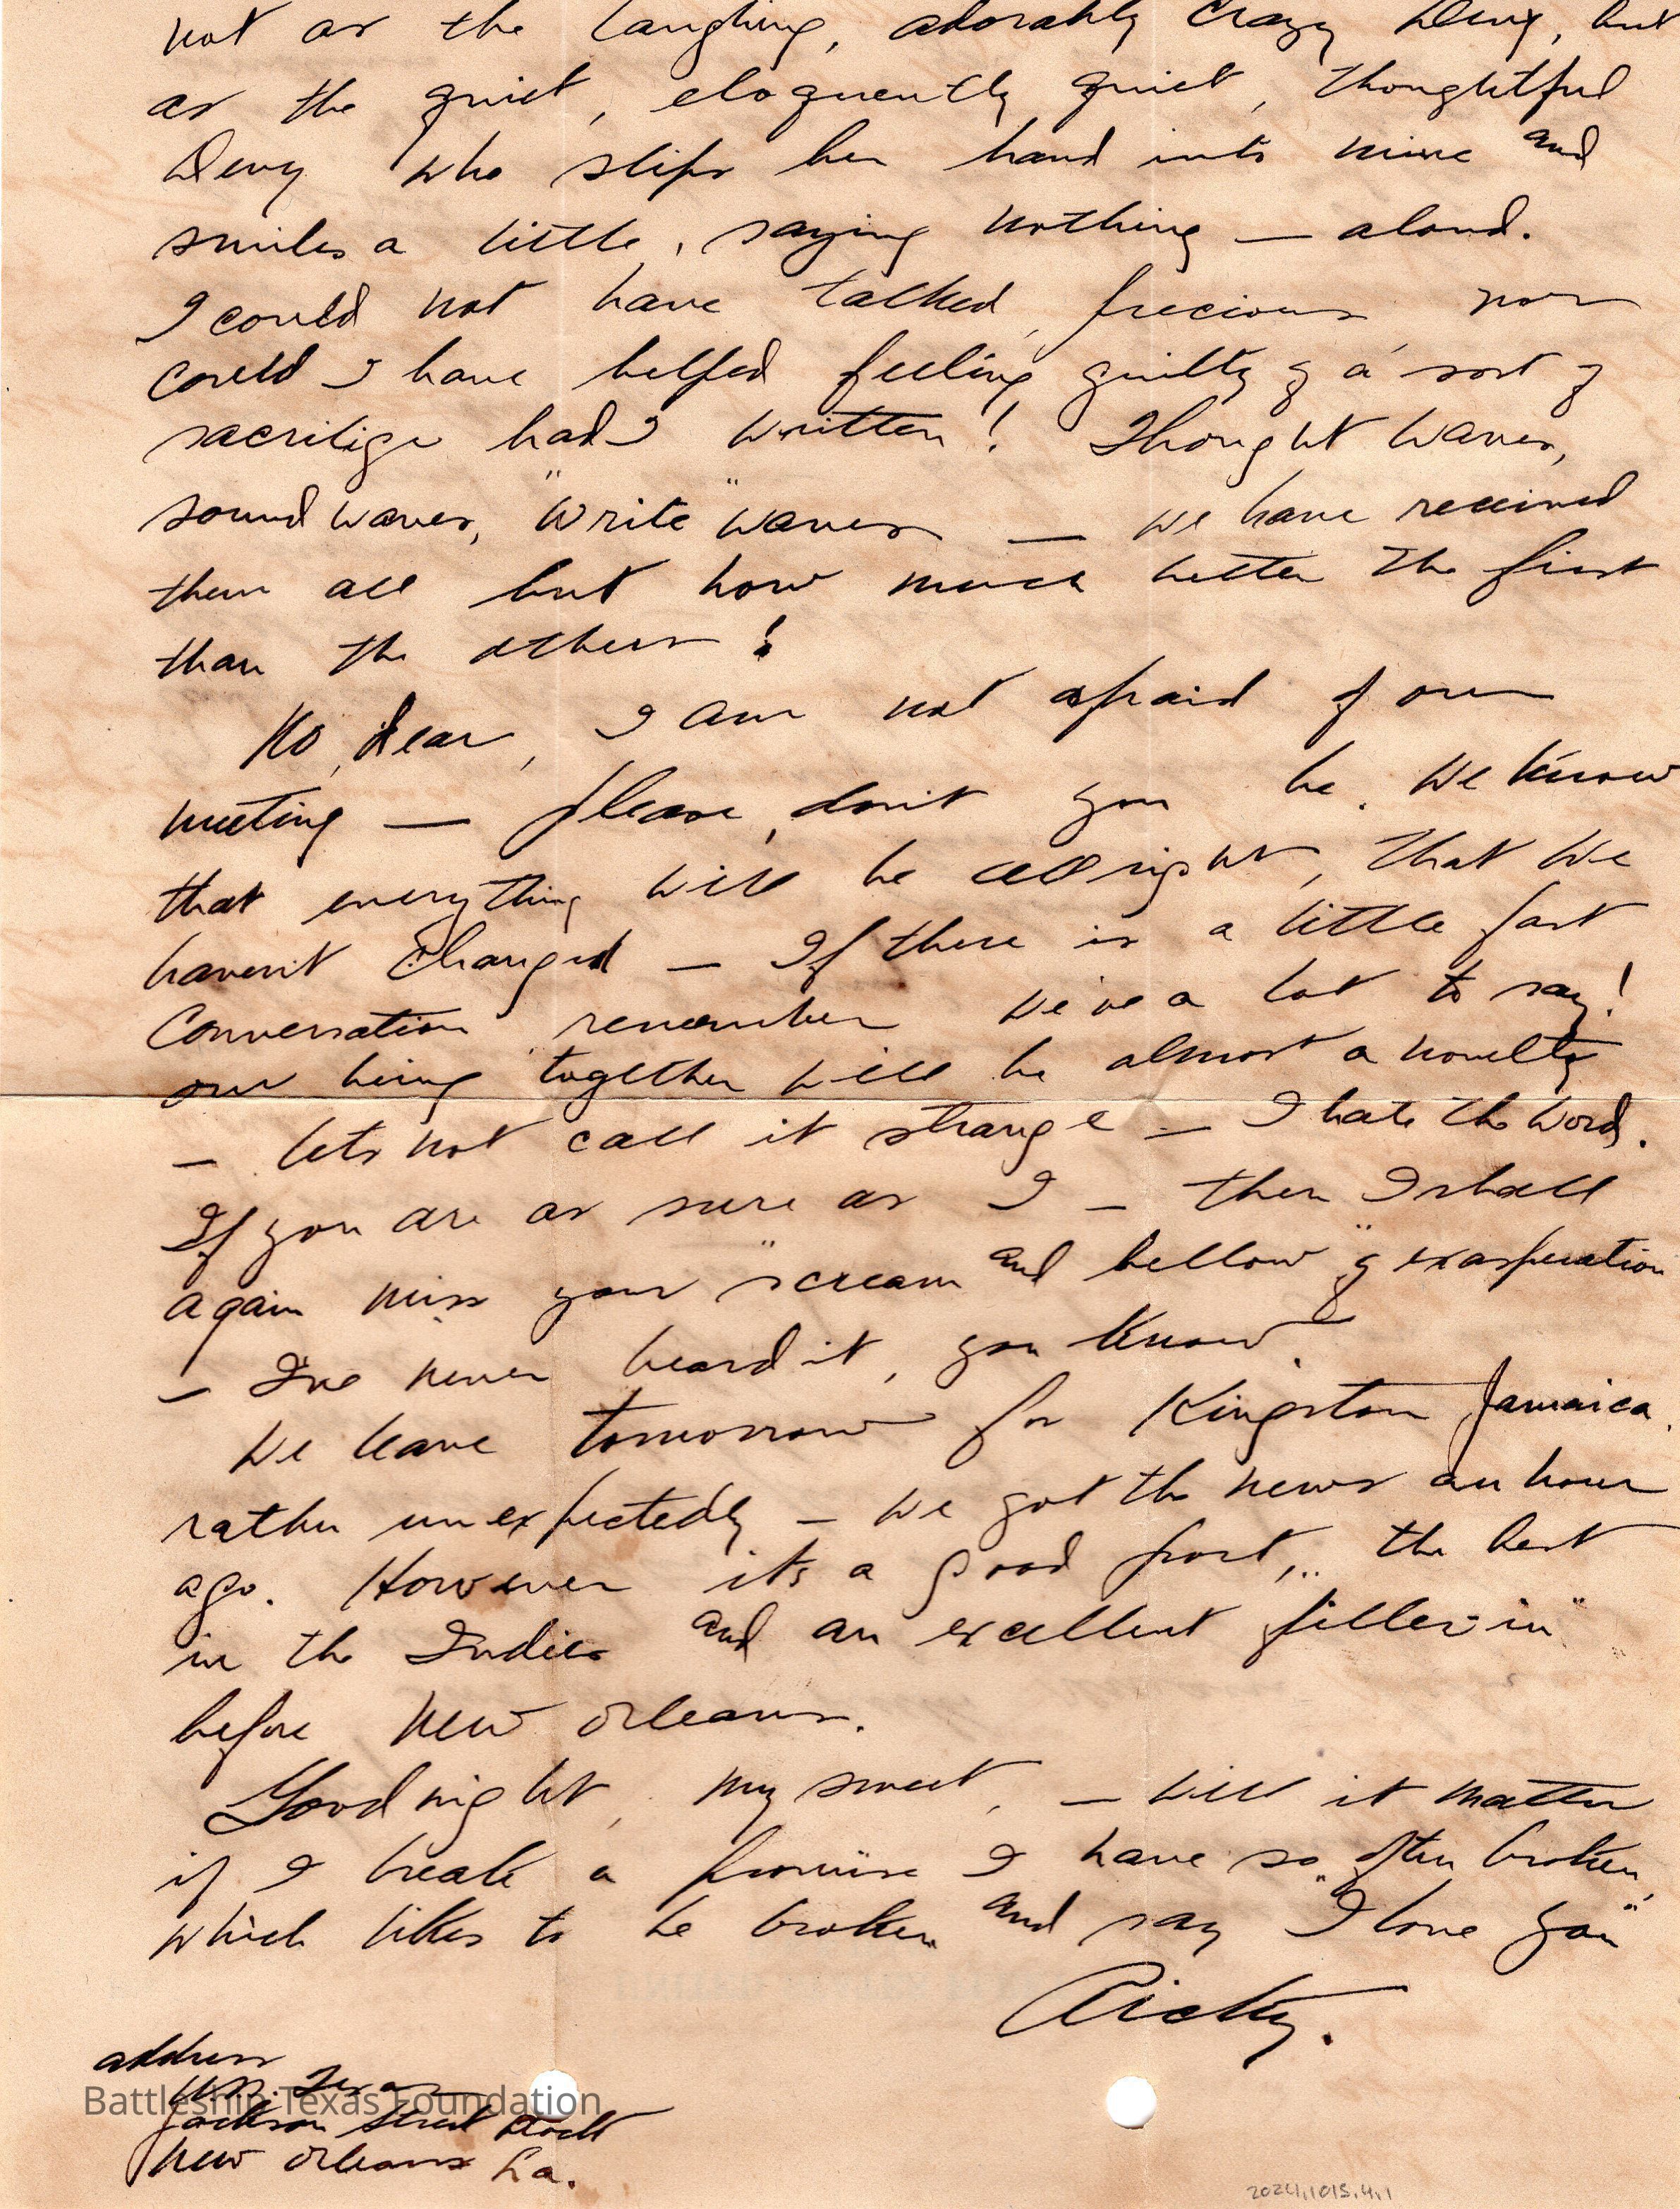 not as the laughing, adorably crazy Deny, but
as the quiet, eloquently quiet, thoughtful
Deny who slips her hand into mine and
smiles a little, saying nothing — aloud.
I could not have talked, precious nor
could I have helped feeling guilty of a sort of
sacrilige had I written! Thought waves,
sound waves, "write" waves — we have received
them all but how much better the first
than the others!
No, dear, I am not afraid of our
meeting — please, don't you be. We know
that everything will be all right, that we
haven't changed — If there is a little fast
conversation remember we've a lot to say!
our being together will be almost a novelty
— lets not call it strange — I hate the word.
If you are as sure as I — then I shall
again miss your "scream and bellow" of exasperation
— I've never heard it, you know.
We leave tomorrow for Kingston Jamaica.
rather unexpectedly — we got the news an hour
ago. However its a good port, the best
in the Indies and an excellent "filler-in"
before New Orleans.
Good night, my sweet, — will it matter
if I break a promise I have so often broken,
which likes to be broken and say "I love you"
Ricky.
address
U.S.S. Texas
Jackson Street Dock
New Orleans La.
Battleship Texas Foundation
2024.1015.4.1